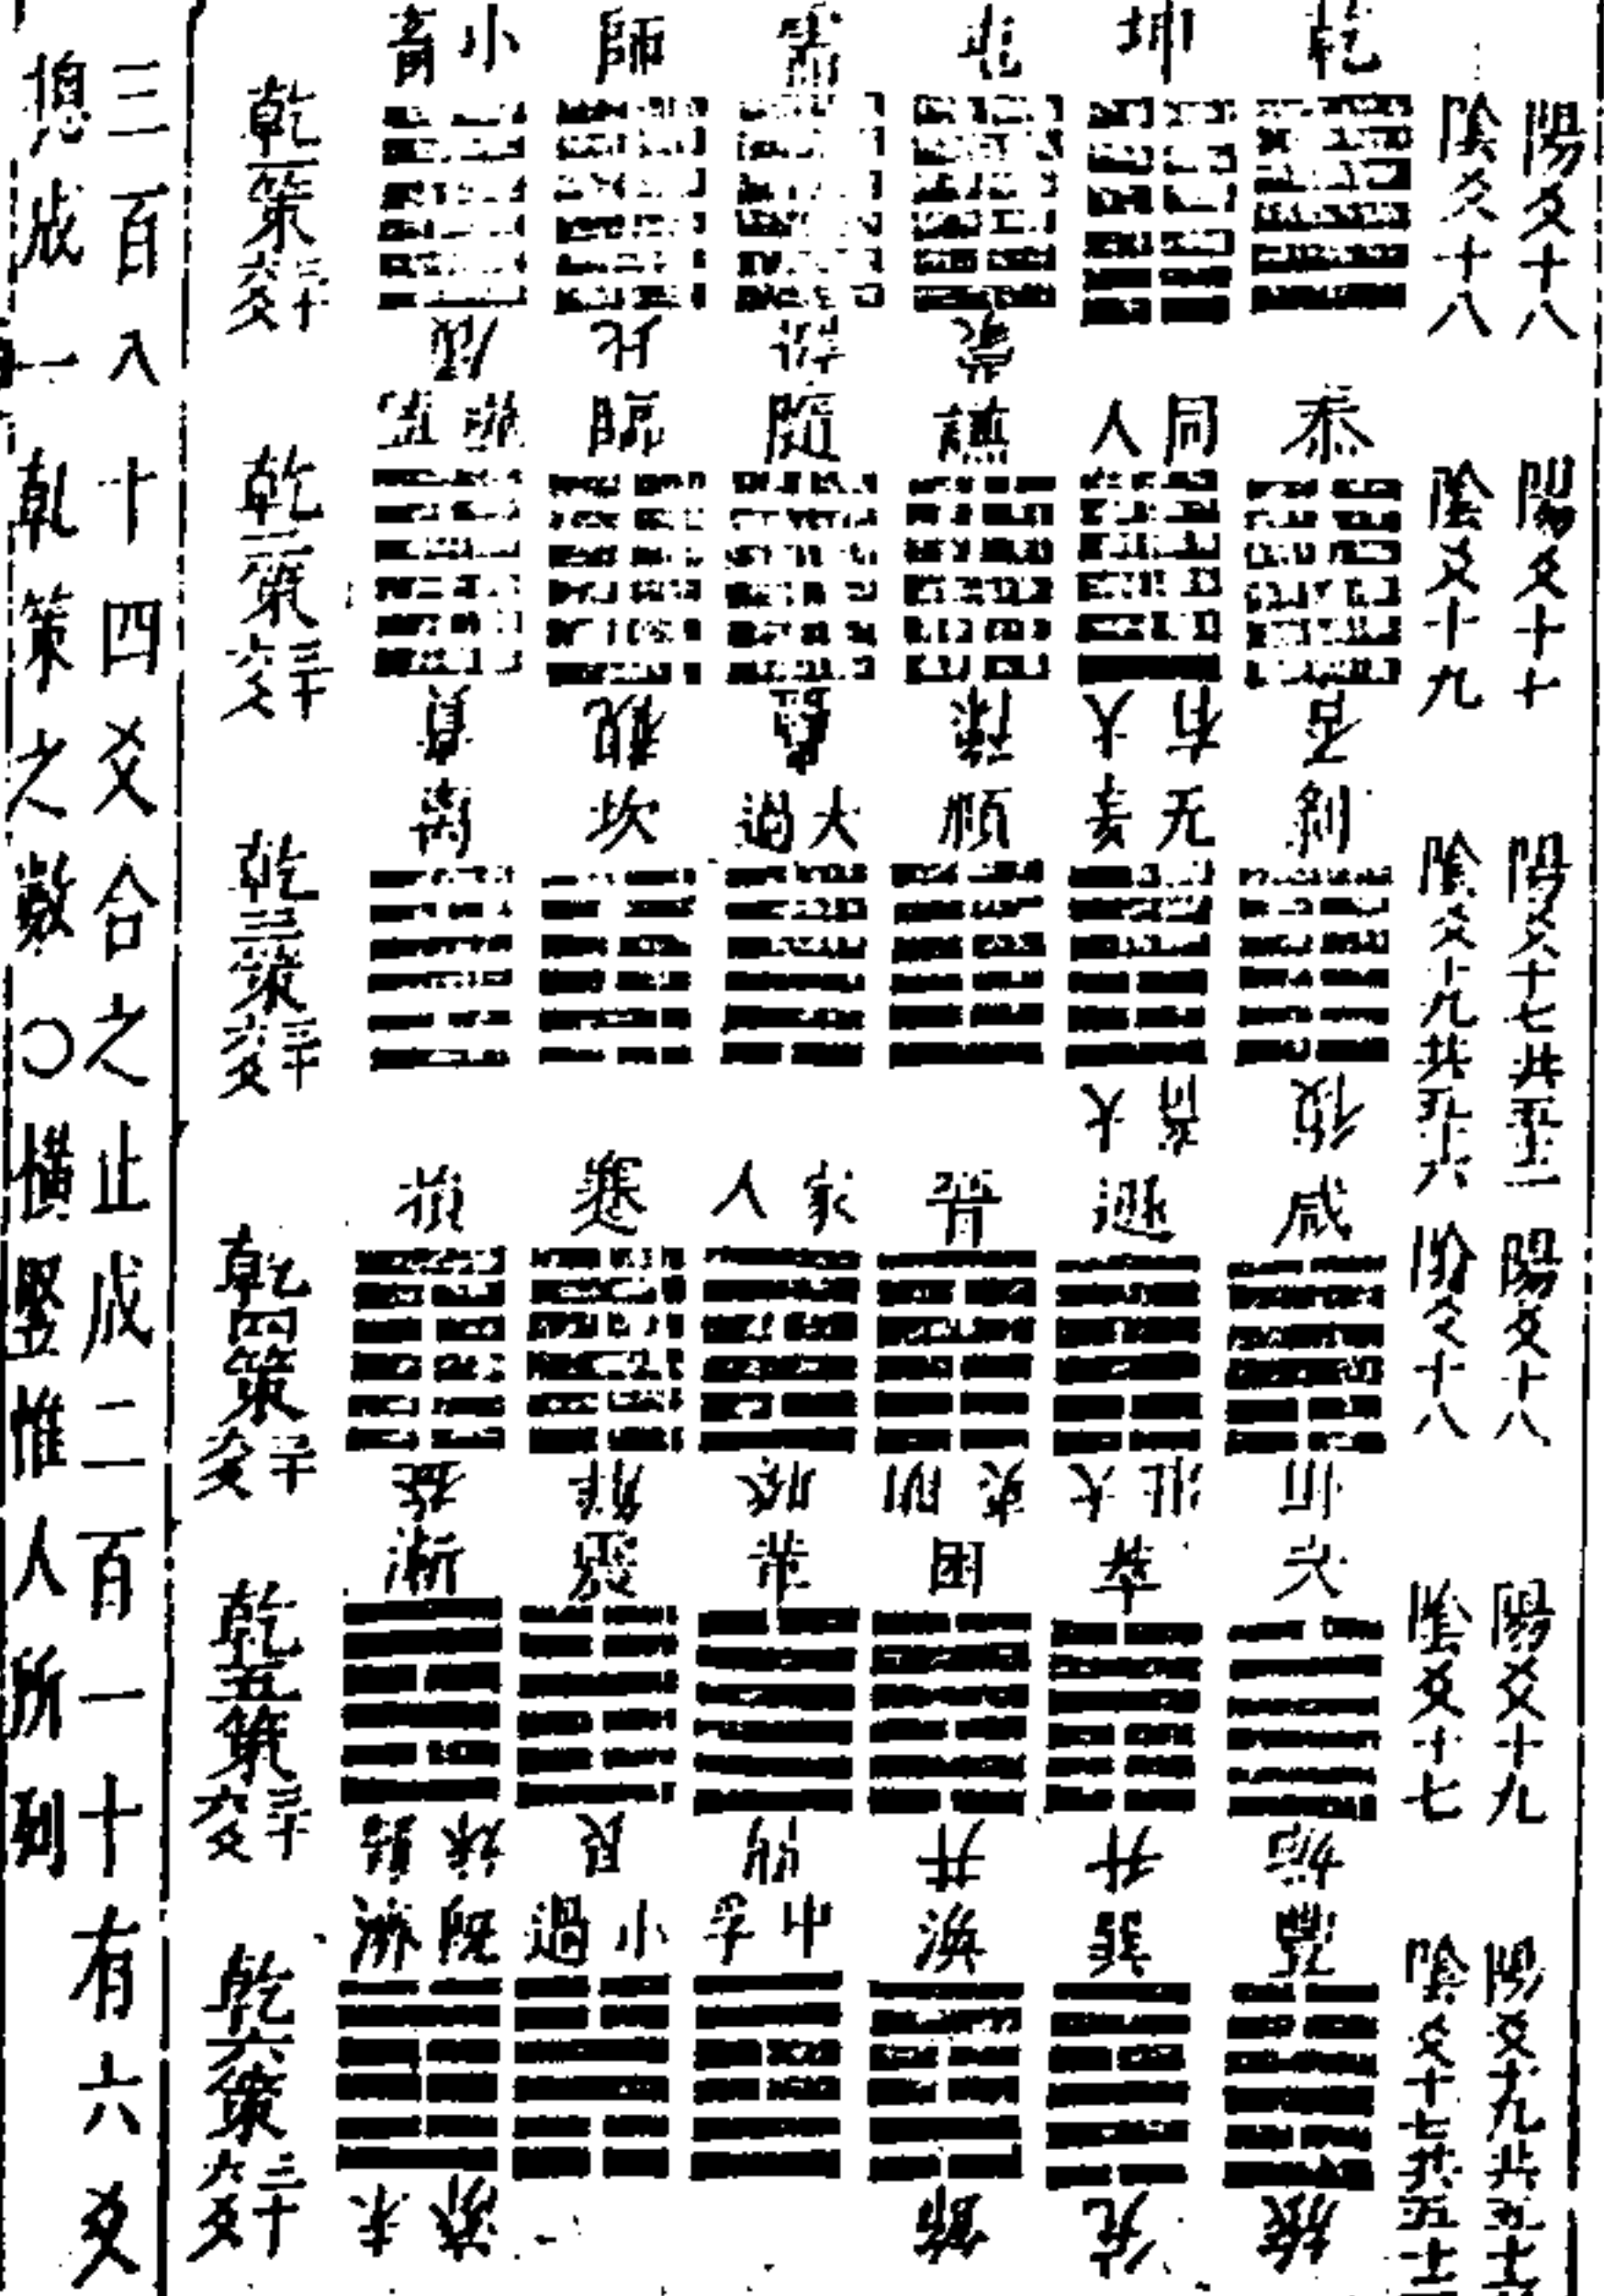 陽爻十八
陰爻十八
乾 坤 屯 需 師 小畜
蒙 訟 比 履
乾一策 三十六爻
陽爻十七
陰爻十九
泰 同人 謙 隨 臨 噬嗑
否 大有 豫 蠱 觀 賁
乾二策 三十六爻
陽爻十七共五十二
陰爻十九共五十六
剝 无妄 頤 大過 坎 离
復 大畜
乾三策 三十六爻
陽爻十八
陰爻十八
咸 遯 晉 家人 蹇 損
恒 大壯 明夷 睽 解 益
乾四策 三十六爻
陽爻十九
陰爻十七
夬 萃 困 革 震 漸
姤 升 井 鼎 艮 歸妹
乾五策 三十六爻
陽爻十九共五十
陰爻十七共五十
豐 巽 渙 中孚 小過 既濟
旅 兌 節 未濟
乾六策 三十六爻
三百八十四爻合之止成二百一十有六爻
摠成一乹策之數○橫竪惟人所列